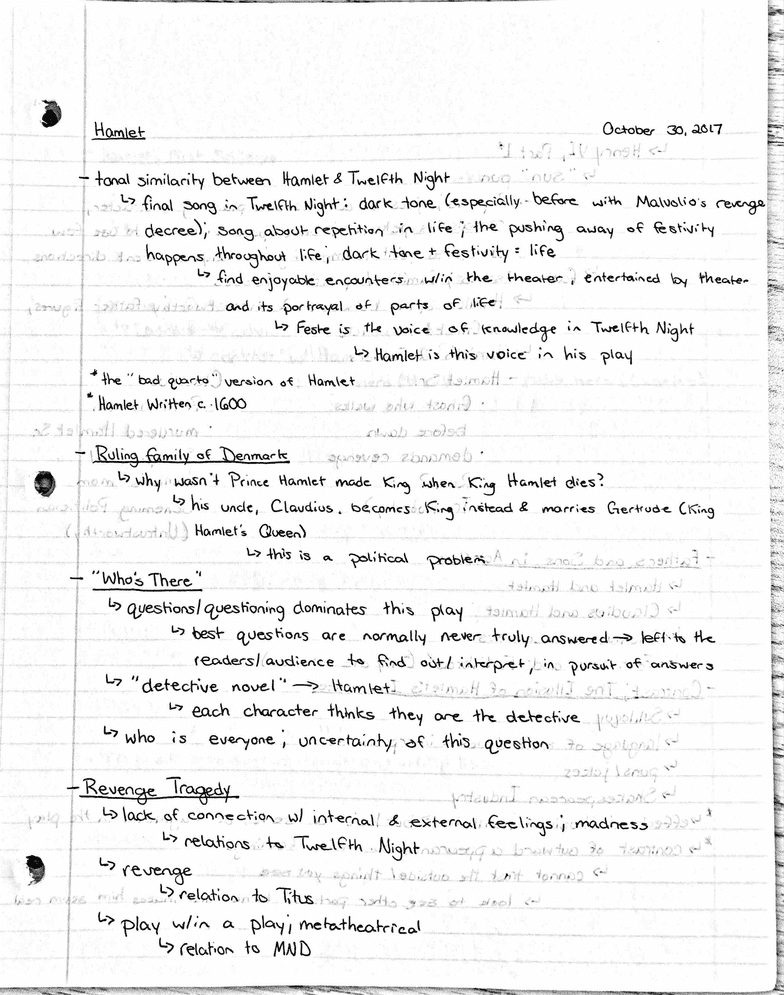 Hamlet
October 30, 2017
- tonal similarity between Hamlet & Twelfth Night
↳ final song in Twelfth Night: dark tone (especially before with Malvolio's revenge
decree); song about repetition in life; the pushing away of festivity
happens throughout life; dark tone + festivity = life
↳ find enjoyable encounters w/in the theater; entertained by theater
and its portrayal of parts of life.
↳ Feste is the voice of knowledge in Twelfth Night
↳ Hamlet is this voice in his play
* the "bad quarto" version of Hamlet
* Hamlet Written c. 1600
- Ruling family of Denmark
↳ why wasn't Prince Hamlet made King when King Hamlet dies?
↳ his uncle, Claudius. becomes King instead & marries Gertrude (King
Hamlet's Queen)
↳ this is a political problem
- "Who's There"
↳ questions/questioning dominates this play
↳ best questions are normally never truly answered → left to the
readers/audience to find out/interpret, in pursuit of answers
↳ "detective novel" → Hamlet
↳ each character thinks they are the detective
↳ who is everyone; uncertainty of this question
- Revenge Tragedy
↳ lack of connection w/ internal & external feelings; madness
↳ relations to Twelfth Night
↳ revenge
↳ relation to Titus
↳ play w/in a play; metatheatrical
↳ relation to MND